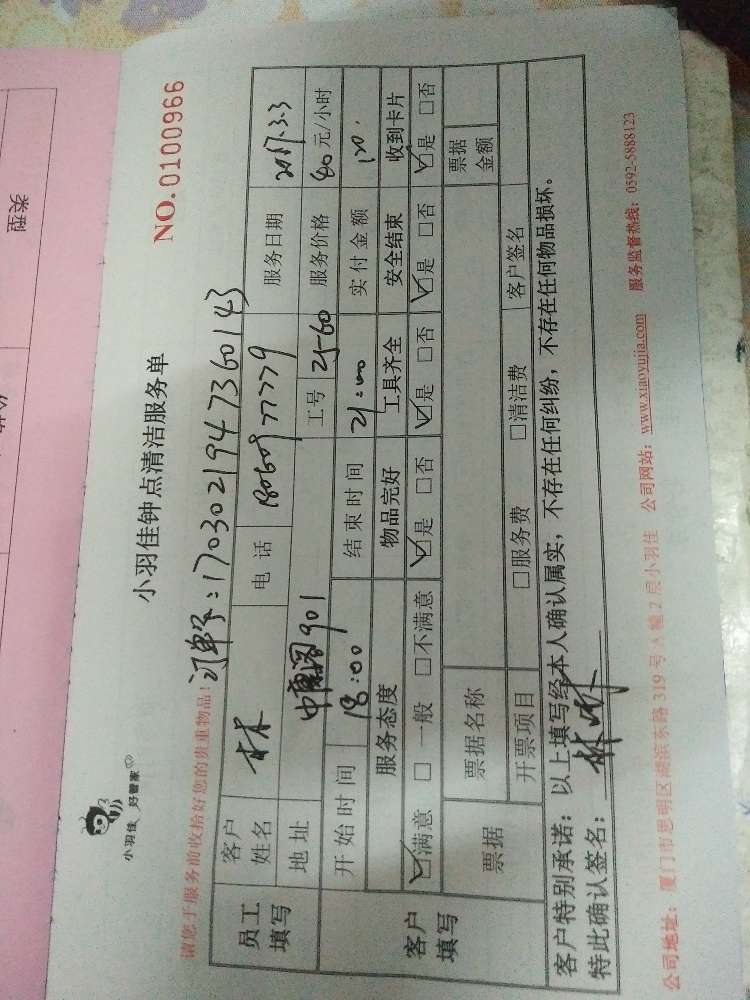 类型
小羽佳 好管家
小羽佳钟点清洁服务单
NO.0100966
请您于服务前收拾好您的贵重物品!
订单号:1703021947360143
员工填写
客户姓名 林 电话 18060977779 服务日期 2017.3.3
地址 901 工号 25-60 服务价格 40元/小时
开始时间 18:00 结束时间 21:00 实付金额 120.
客户填写
服务态度 物品完好 工具齐全 安全结束 收到卡片
☑满意 □一般 □不满意 ☑是 □否 ☑是 □否 ☑是 □否 ☑是 □否
票据 票据名称 票据金额
开票项目 □服务费 □清洁费 客户签名
客户特别承诺:以上填写经本人确认属实,不存在任何纠纷,不存在任何物品损坏。
特此确认签名:林
公司地址:厦门市思明区湖滨东路319号A幢2层小羽佳 公司网站:www.xiaoyujia.com 服务监督热线:0592-5888123